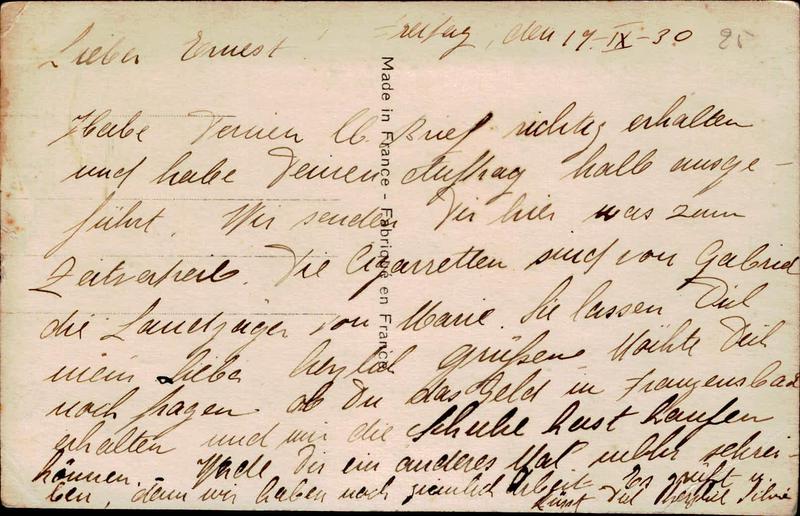 Freitag, den 19-IX-30
25
Lieber Ernest!
Habe Deinen lb Brief richtig erhalten
und habe Deinen Auftrag halb ausge-
führt. Wir senden Dir hier was zum
Zeitvertreib. Die Cigarretten sind von Gabriel
die Landjäger von Marie. Sie lassen Dich
mein lieber herzlich grüßen. Möchte Dich
noch fragen ob Du das Geld in Franzensbad
erhalten und mir die Schuhe hast kaufen
können. Werde Dir ein anderes Mal mehr schrei-
ben, denn wir haben noch ziemlich Arbeit. Es grüßt u.
küsst Dich herzlich
Made in France - Fabriqué en France